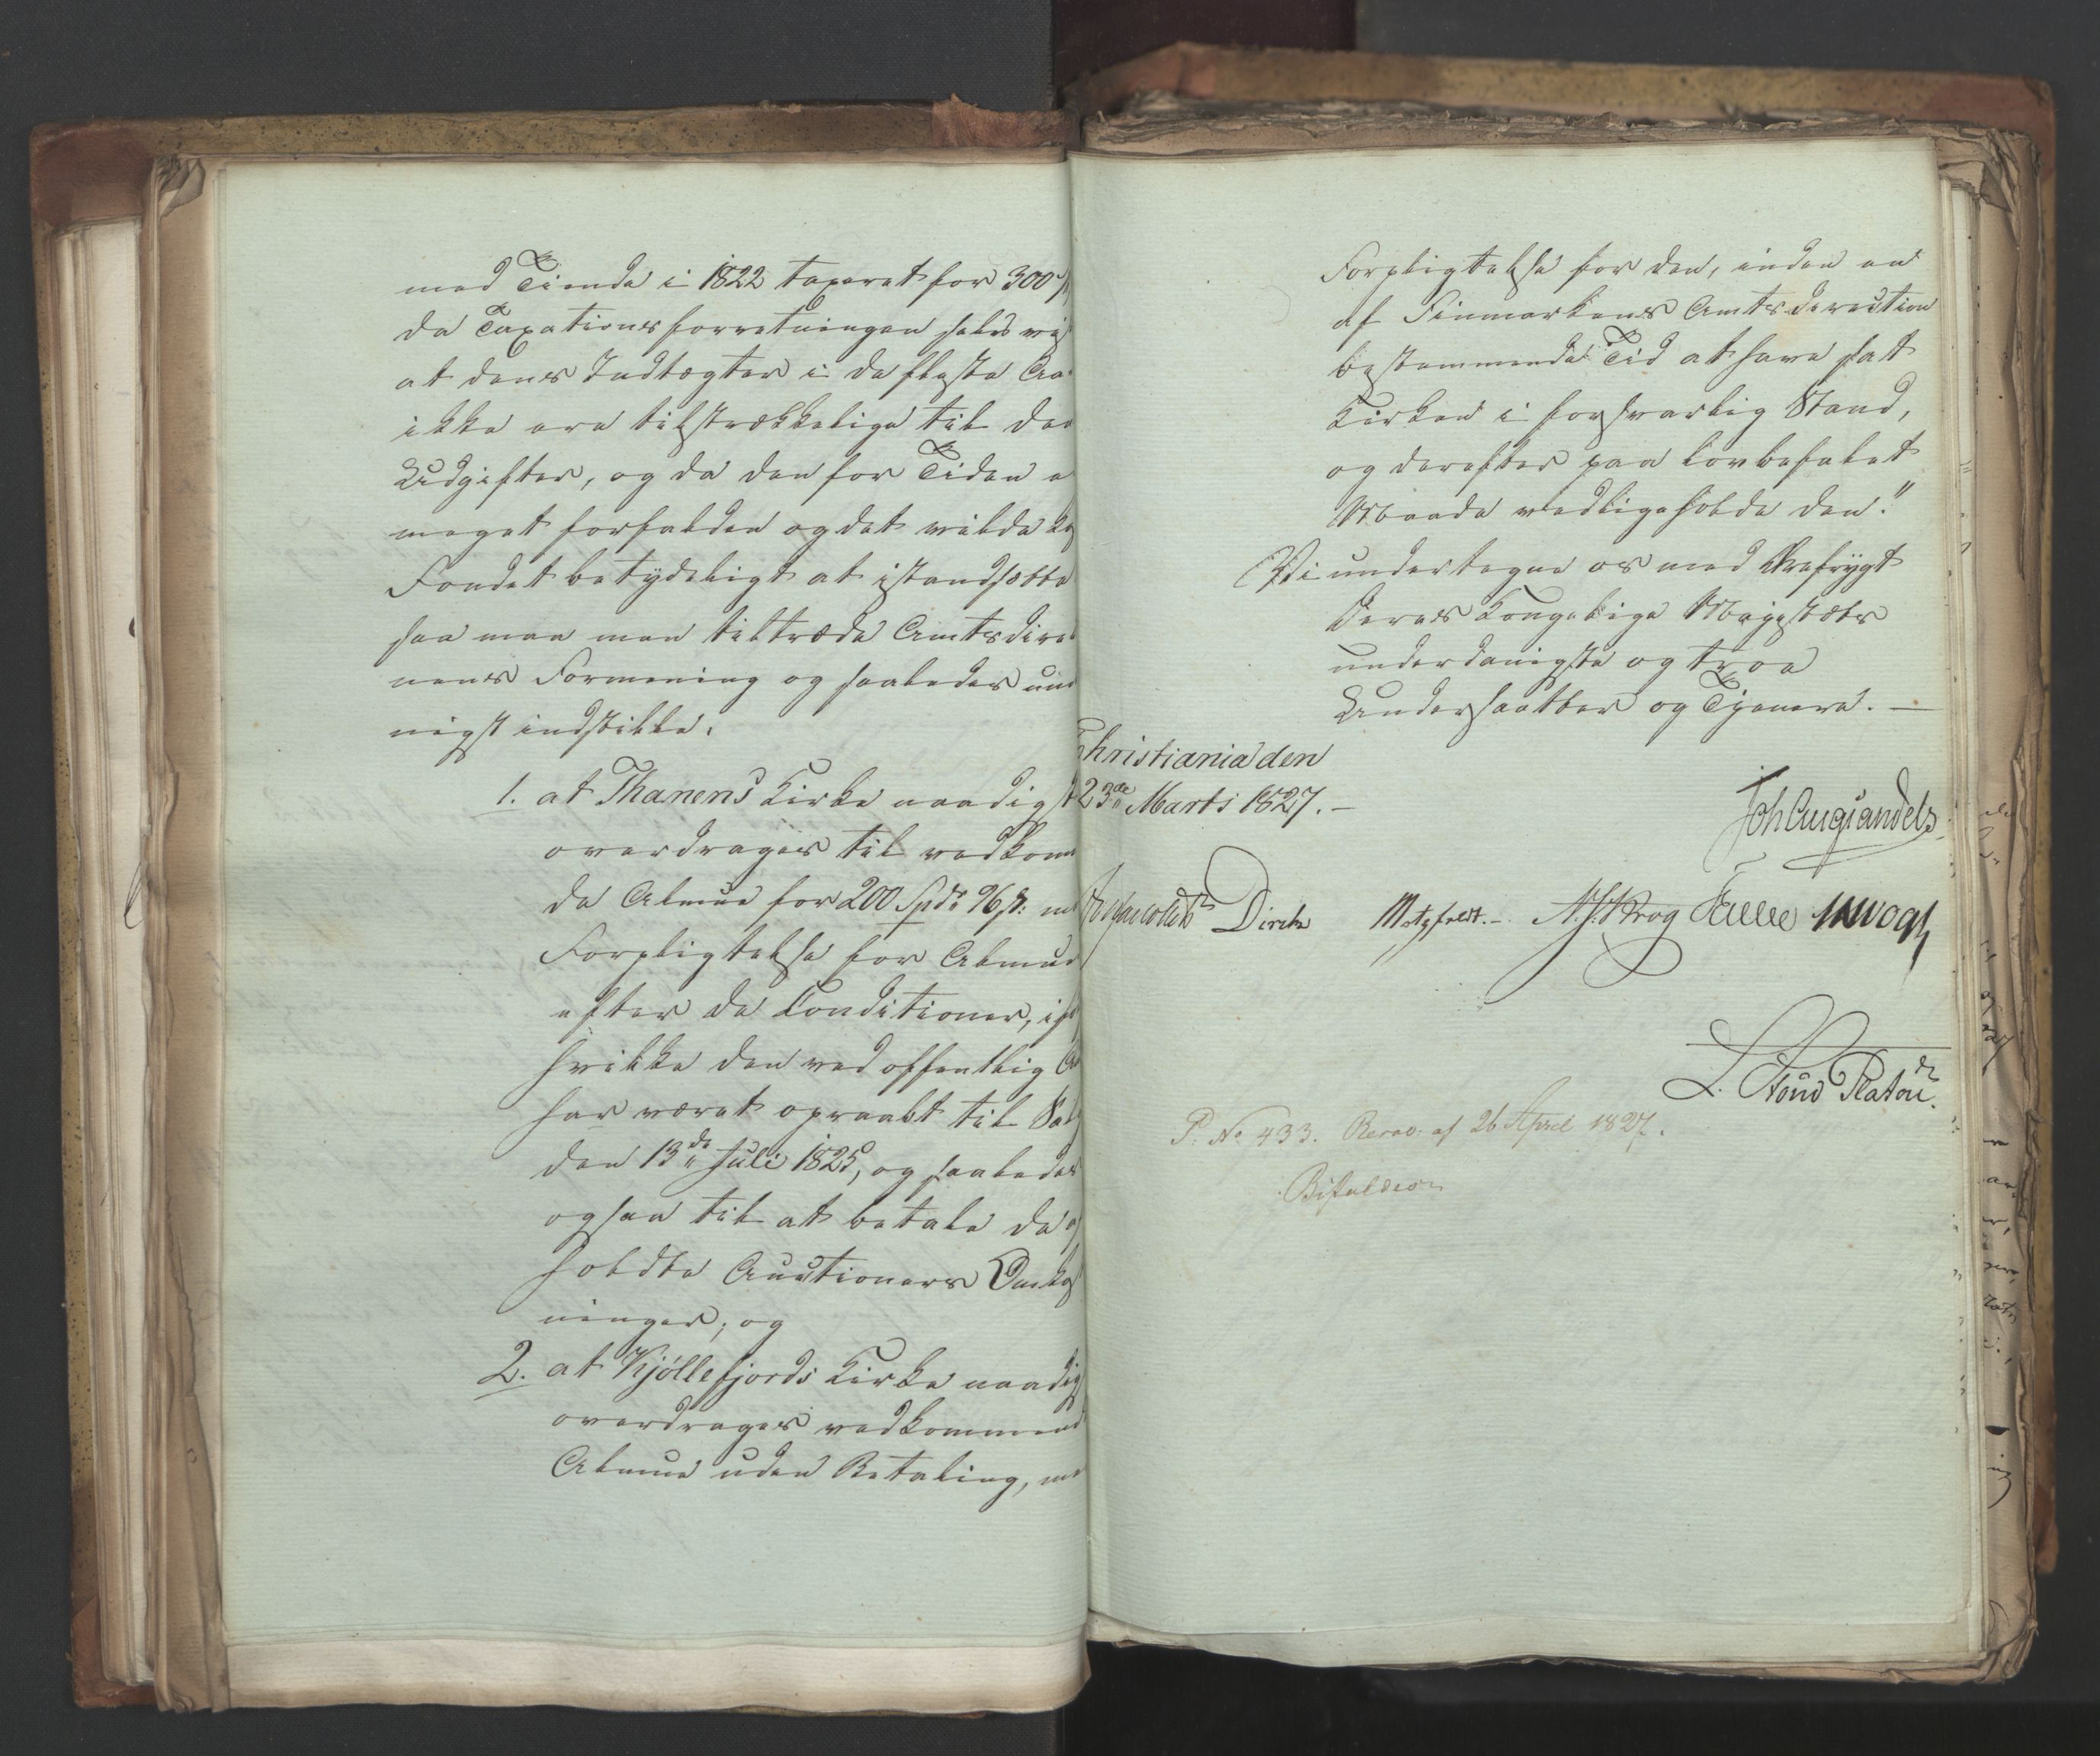 med Tiende i 1822 taxeret for 300
da Taxationsforretningen selv
at dens Indtægter i de fleste Aa
ikke ere tilstrækkelige til den
Udgifter, og da den for Tiden e
meget forfalden og det vilde ko
Fondet betydeligt at istandsætte
saa maa man tiltræde Amtsdirec
nens Formening og saaledes und
nigst indstille:
1. at Thanens Kirke naadigst
overdrages til vedkom
de Almue for 200 Spd. 96 s: m
Forpligtelse for Almue
efter de Conditioner, if
hvilke den ved offentlig A
har været opraabt til Sal
den 13de Juli 1825, og saaledes
ogsaa til at betale de af
holdte Auctioners Omkos
ninger; og
2. at Kjöllefjords Kirke naadig
overdrages vedkommend
Almue uden Betaling, me
Forpligtelse for den, inden en
af Finmarkens Amtsdirection
bestemmende Tid at have sat
Kirken i forsvarlig Stand,
og derefter paa lovbefalet
Maade vedligeholde den."
Vi undertegne os med Ærefrygt
Deres Kongelige Majestæts
underdanigste og troe
Undersaatter og Tjenere. —
Christiania den
23de Marts 1827. —
Joh Aug Sandels
Diriks Motzfeldt. Krog
L. Stoud Platou.
P. No 433. Resol: af 26 April 1827.
Bifaldes